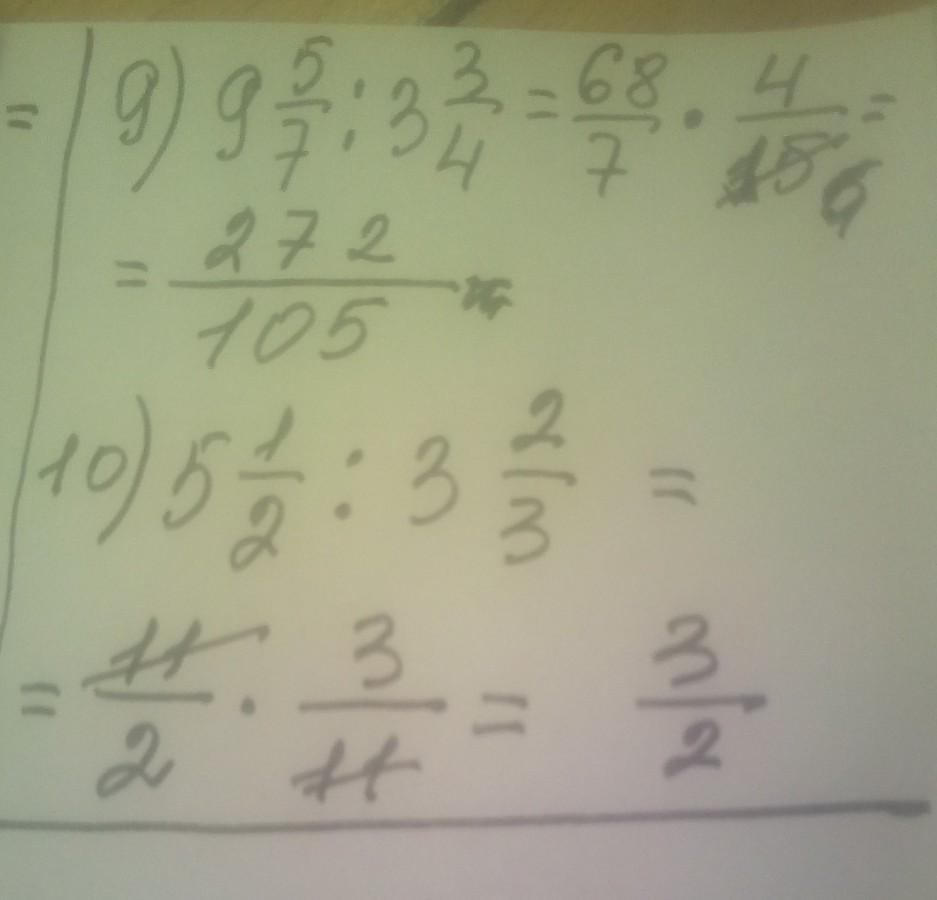 = 9) 9 5/7 : 3 3/4 = 68/7 · 4/15 =
= 272/105
10) 5 1/2 : 3 2/3 =
= 11/2 · 3/11 = 3/2